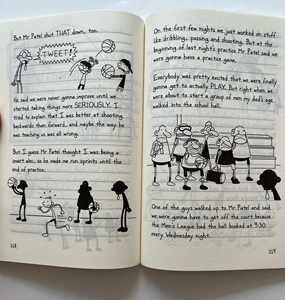 But Mr Patel shut THAT down, too.
TWEET!
He said we were never gonna improve until we
started taking things more SERIOUSLY. I
tried to explain that I was better at shooting
backwards than forward, and maybe the way he
was teaching us was all wrong.
But I guess Mr Patel thought I was being a
smart alec, so he made me run sprints until the
end of practice.
118
On the first few nights we just worked on stuff
like dribbling, passing and shooting. But at the
beginning of last night's practice Mr Patel said we
were gonna have a practice game.
Everybody was pretty excited that we were finally
gonna get to actually PLAY. But right when we
were about to start a group of men my dad's age
walked into the school hall.
One of the guys walked up to Mr Patel and said
we were gonna have to get off the court because
the Men's League had the hall booked at 9:30
every Wednesday night.
119